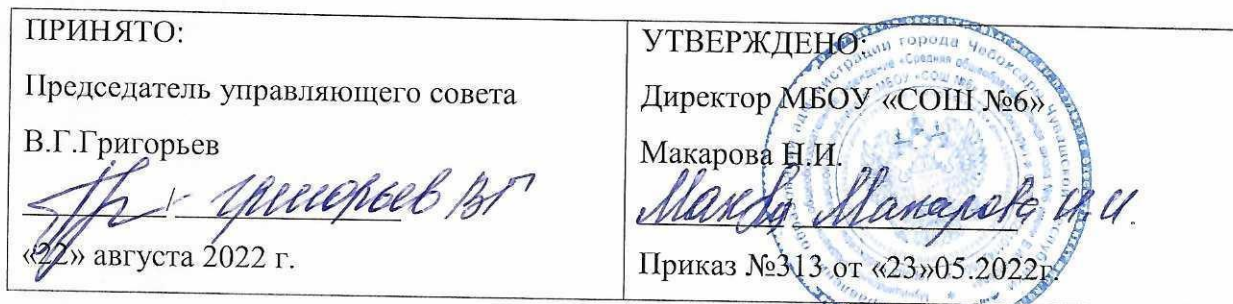 ПРИНЯТО:
Председатель управляющего совета
В.Г.Григорьев
Григорьев ВГ
«22» августа 2022 г.
УТВЕРЖДЕНО:
Директор МБОУ «СОШ №6»
Макарова Н.И.
Макарова Н.И.
Приказ №313 от «23»05.2022г.
города Чебоксары